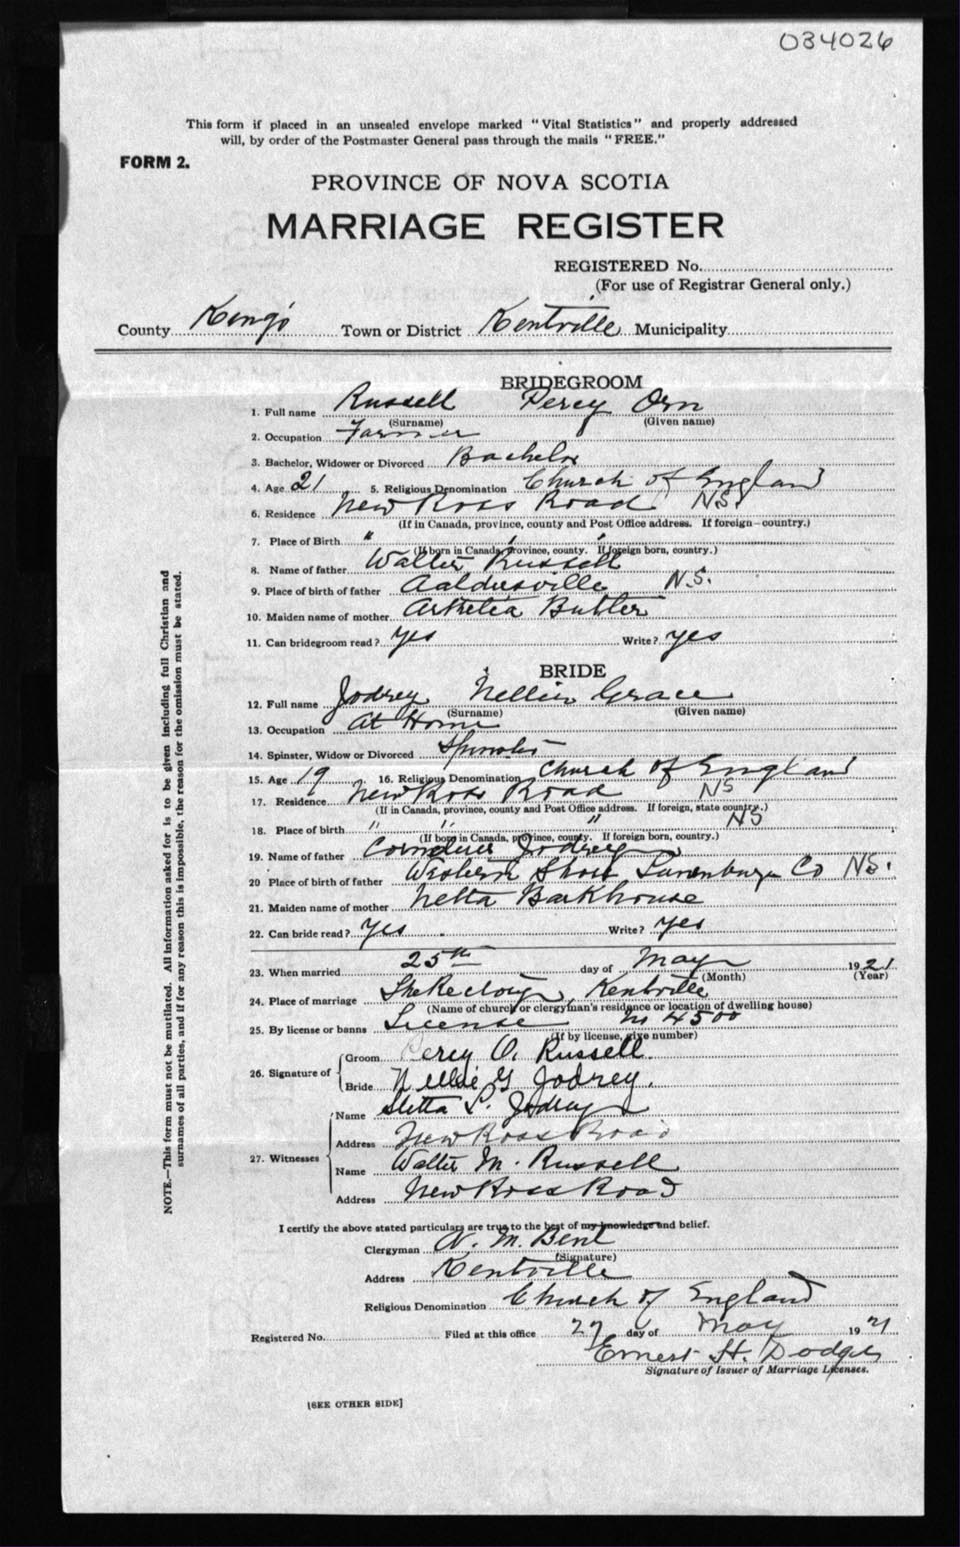 034026
This form if placed in an unsealed envelope marked "Vital Statistics" and properly addressed
will, by order of the Postmaster General pass through the mails "FREE."
FORM 2.
PROVINCE OF NOVA SCOTIA
MARRIAGE REGISTER
REGISTERED No.
(For use of Registrar General only.)
County Kings Town or District Kentville Municipality
BRIDEGROOM
1. Full name Russell Percy Orn
(Surname) (Given name)
2. Occupation Farmer
3. Bachelor, Widower or Divorced Bachelor
4. Age 21 5. Religious Denomination Church of England
6. Residence New Ross Road NS.
(If in Canada, province, county and Post Office address. If foreign—country.)
7. Place of Birth " " "
(If born in Canada, province, county. If foreign born, country.)
8. Name of father Walter Russell
9. Place of birth of father Aaldersville N.S.
10. Maiden name of mother Butler
11. Can bridegroom read? yes Write? yes
BRIDE
12. Full name Jodrey Nellie Grace
(Surname) (Given name)
13. Occupation At Home
14. Spinster, Widow or Divorced Spinster
15. Age 19 16. Religious Denomination Church of England
17. Residence New Ross Road NS
(If in Canada, province, county and Post Office address. If foreign, state country.)
18. Place of birth " " " NS
(If born in Canada, province, county. If foreign born, country.)
19. Name of father Cornelius Jodrey
20 Place of birth of father Western Shore Lunenburg Co NS.
21. Maiden name of mother Netta Barkhouse
22. Can bride read? Yes Write? Yes
23. When married 25th day of May 1921
(Month) (Year)
24. Place of marriage The Rectory, Kentville
(Name of church or clergyman's residence or location of dwelling house)
25. By license or banns License No 4500
(If by license, give number)
26. Signature of Groom Percy O. Russell.
Bride Nellie G Jodrey.
27. Witnesses Name Jodrey
Address New Ross Road
Name Walter M. Russell
Address New Ross Road
I certify the above stated particulars are true to the best of my knowledge and belief.
Clergyman N. M. Bent
(Signature)
Address Kentville
Religious Denomination Church of England
Registered No. Filed at this office 27 day of May 1921
Ernest H. Dodge
Signature of Issuer of Marriage Licenses.
[SEE OTHER SIDE]
NOTE.—This form must not be mutilated. All information asked for is to be given including full Christian and
surnames of all parties, and if for any reason this is impossible, the reason for the omission must be stated.